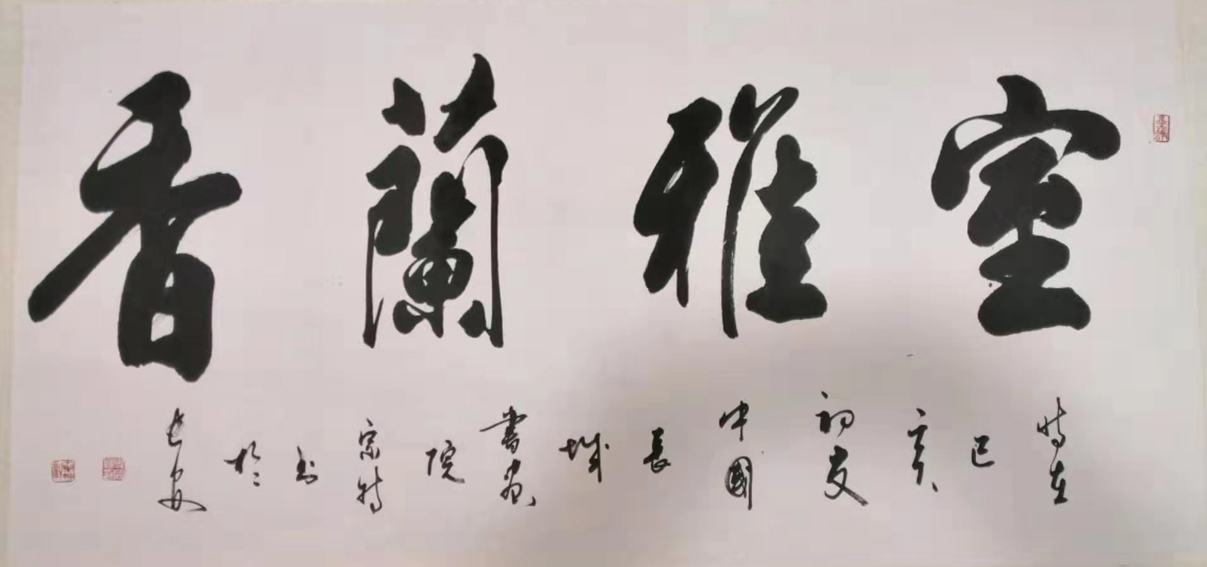 室雅蘭香
時在己亥初夏中國長城書畫院宗特书於长安